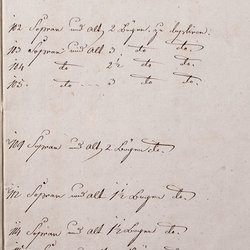 102 Sopran und alt, 2 Bögen. zu
103 Sopran und alt 3. do do.
104 do 2½ do do.
105. do .... 3 do do.
109 Sopran und alt, 2 Bögen do.
112 Sopran und alt 1½ Bögen do.
114 Sopran und alt 1½ Bögen do.